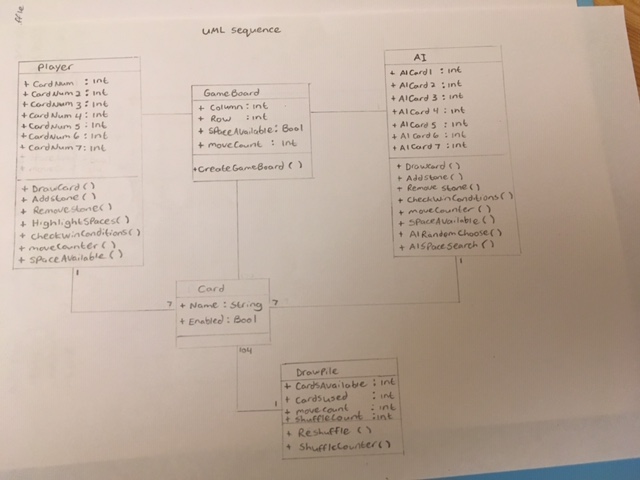 UML sequence
Player
+ CardNum : int
+ CardNum 2 : int
+ CardNum 3 : int
+ CardNum 4 : int
+ CardNum 5 : int
+ CardNum 6 : int
+ CardNum 7 : int
+ DrawCard ( )
+ Addstone ( )
+ Remove stone ( )
+ HighlightSpaces ( )
+ CheckWinConditions ( )
+ moveCounter ( )
+ SpaceAvailable ( )
1
GameBoard
+ Column : int
+ Row : int
+ SpaceAvailable : Bool
+ moveCount : int
+ CreateGameBoard ( )
AI
+ AICard 1 : int
+ AICard 2 : int
+ AICard 3 : int
+ AICard 4 : int
+ AICard 5 : int
+ AICard 6 : int
+ AICard 7 : int
+ DrawCard ( )
+ Addstone ( )
+ Remove stone ( )
+ CheckWinConditions ( )
+ moveCounter ( )
+ SpaceAvailable ( )
+ AIRandomChoose ( )
+ AISpaceSearch ( )
1
7
Card
7
+ Name : String
+ Enabled : Bool
104
1
DrawPile
+ CardsAvailable : int
+ Cardsused : int
+ movecount : int
+ shufflecount : int
+ Reshuffle ( )
+ ShuffleCounter ( )